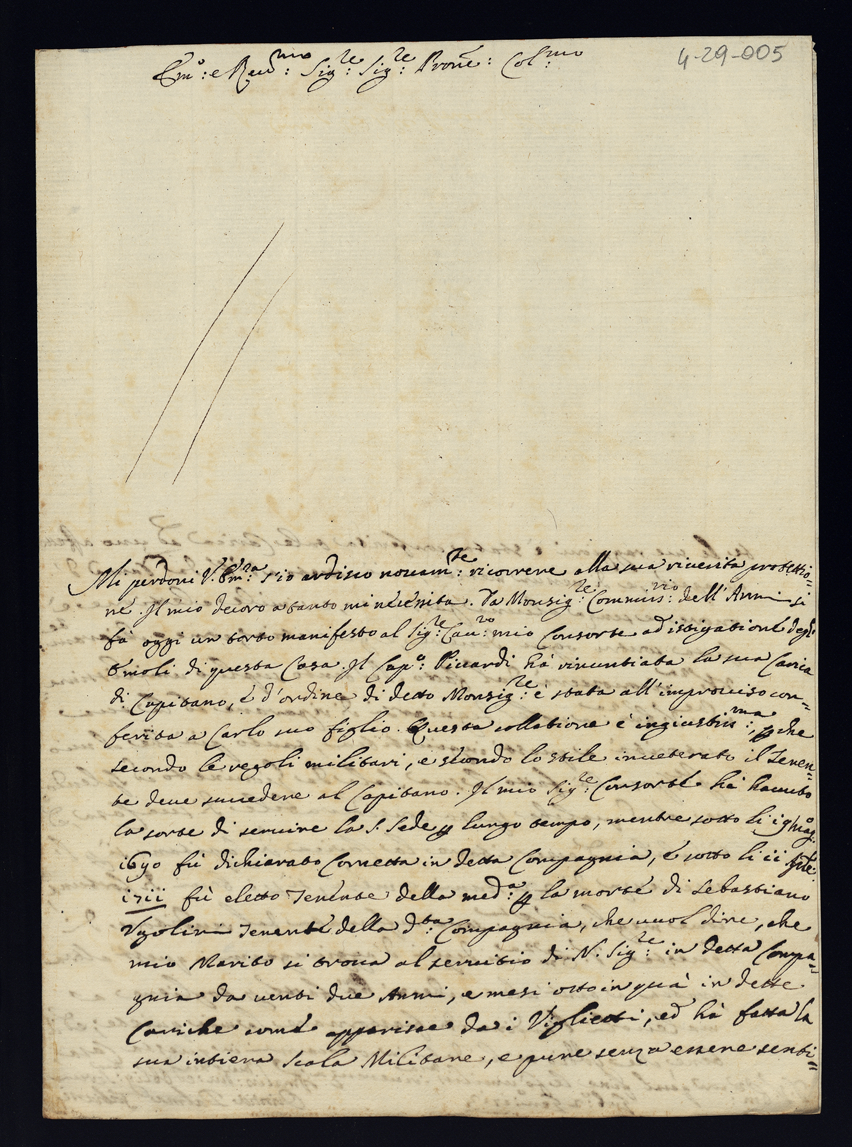 4-29-005
Em.o: e Reu.mo: Sig.re: Sig.re: Prone: Col.mo
Mi perdoni V. Em.za s'io ardisco nouam.te: ricorrere alla sua riuerita protettio=
ne. Il mio decoro a tanto mi necessita. Da Monsig.re: Commiss.rio: dell'Armi si
fà oggi un torto manifesto al Sig.re Cau.ro: mio Consorte ad istigatione degl'
Emoli di questa Casa. Il Cap.o: Piccardi hà rinuntiata la sua Carica
di Capitano, è d'ordine di detto Monsig.re è stata all'improuiso con=
ferita a Carlo suo figlio. Questa collatione è ingiustiss.ma:, p che
secondo le regoli militari, e secondo lo stile inueterato il Tenen=
te deue succedere al Capitano. Il mio Sig.re Consorte hà hauuto
la sorte di seruire la S. Sede p lungo tempo, mentre sotto li 19 Mag.o
1690 fù dichiarato Cornetta in detta Compagnia, è sotto li 11
1711 fù eletto Tenente della med.a p la morte di Sebastiano
Vgolini Tenente della d.ta Compagnia, che uuol dire, che
mio Marito si troua al seruitio di N. Sig.re: in detta Compa=
gnia da uenti due Anni, e mesi otto in quà in dette
Cariche come apparisce da i Viglietti, ed hà fatta la
sua intiera scala Militare, e pure senza essere senti=